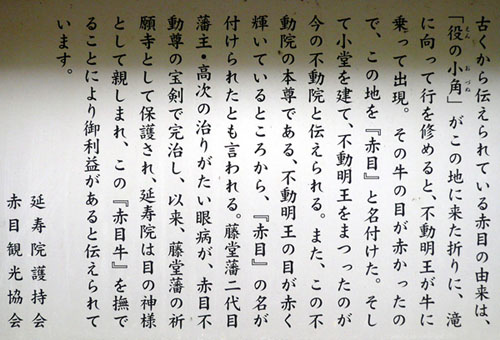 古くから伝えられている赤目の由来は、
「役の小角」がこの地に来た折りに、滝
えん おづぬ
に向って行を修めると、不動明王が牛に
乗って出現。その牛の目が赤かったの
で、この地を『赤目』と名付けた。そし
て小堂を建て、不動明王をまつったのが
今の不動院と伝えられる。また、この不
動院の本尊である、不動明王の目が赤く
輝いているところから、『赤目』の名が
付けられたとも言われる。藤堂藩二代目
藩主・高次の治りがたい眼病が、赤目不
動尊の宝剣で完治し、以来、藤堂藩の祈
願寺として保護され、延寿院は目の神様
として親しまれ、この『赤目牛』を撫で
ることにより御利益があると伝えられて
います。
延寿院護持会
赤目観光協会